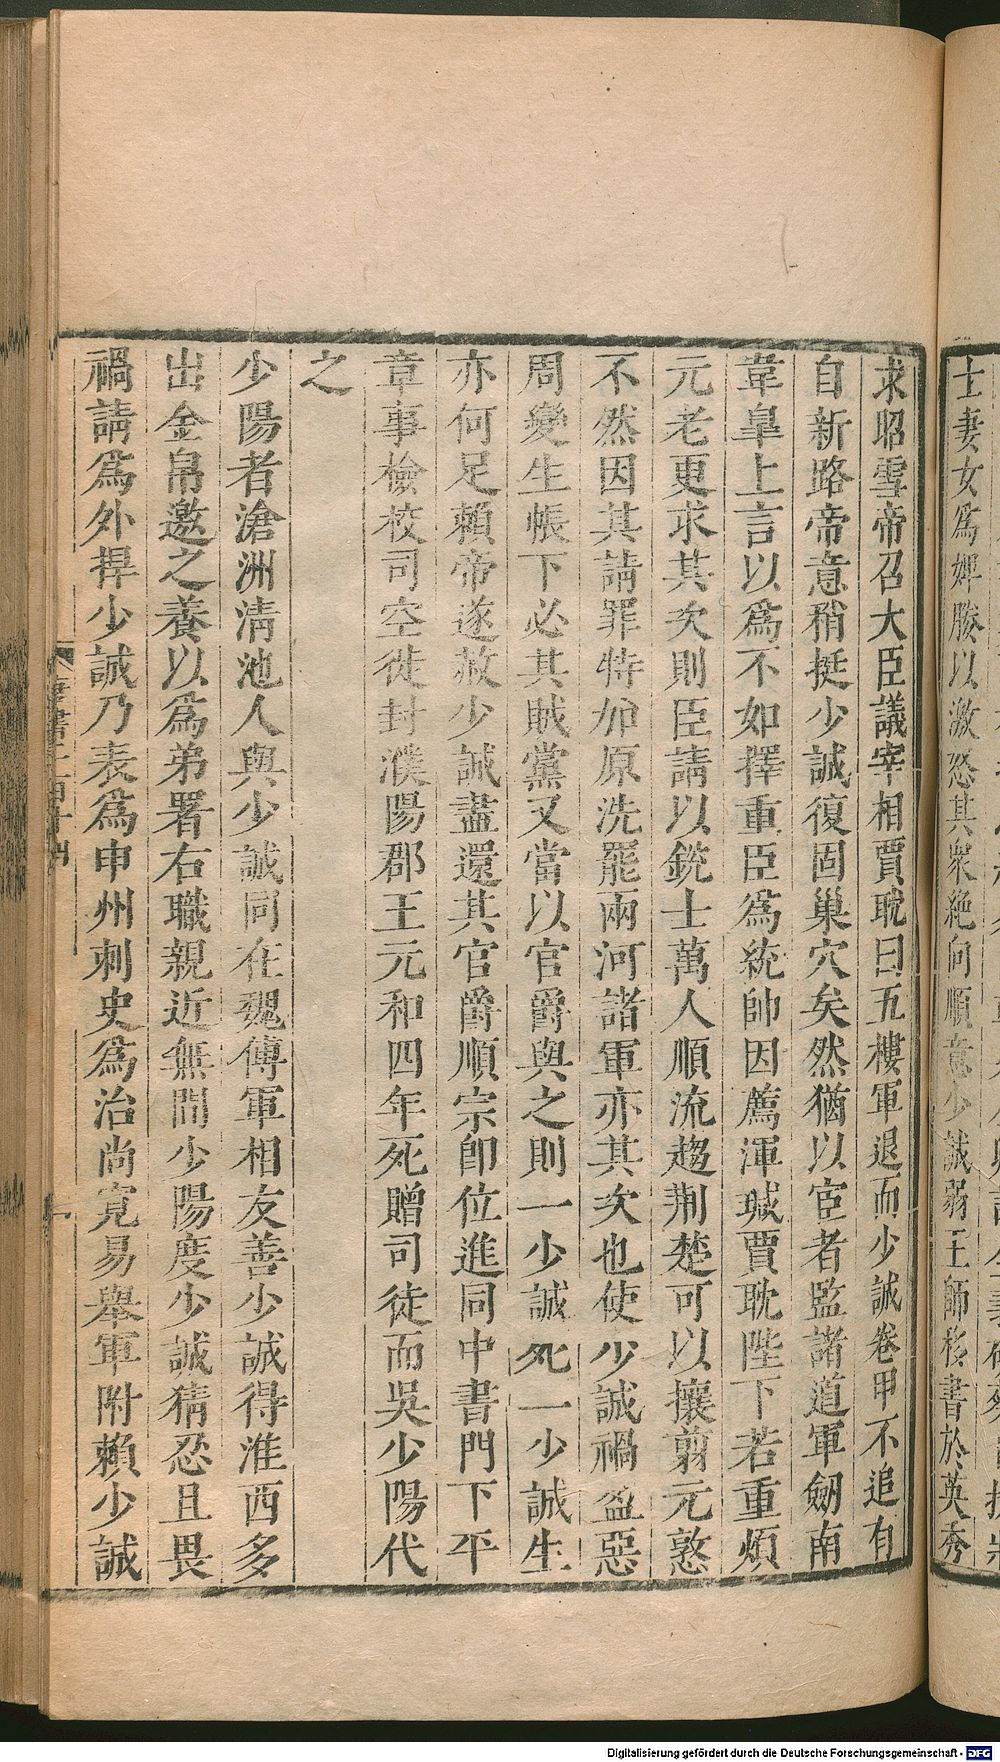 士妻女爲婢媵以激怒其衆絶向順意少誠弱王師移書於英秀
求昭雪帝召大臣議宰相賈耽曰五樓軍退而少誠卷甲不追有
自新路帝意稍挺少誠復固巢穴矣然猶以宦者監諸道軍劒南
韋臯上言以爲不如擇重臣爲統帥因薦渾瑊賈耽陛下若重煩
元老更求其次則臣請以銳士萬人順流趨荆楚可以攘翦元憝
不然因其請罪特加原洗罷兩河諸軍亦其次也使少誠禍盈惡
周變生帳下必其賊黨又當以官爵與之則一少誠死一少誠生
亦何足賴帝遂赦少誠盡還其官爵順宗卽位進同中書門下平
章事檢校司空徙封濮陽郡王元和四年死贈司徒而吳少陽代
之
少陽者滄洲清池人與少誠同在魏傅軍相友善少誠得淮西多
出金帛邀之養以爲弟署右職親近無間少陽度少誠猜忍且畏
禍請爲外捍少誠乃表爲申州刺史爲治尚寬易舉軍附賴少誠
Digitalisierung gefördert durch die Deutsche Forschungsgemeinschaft - DFG